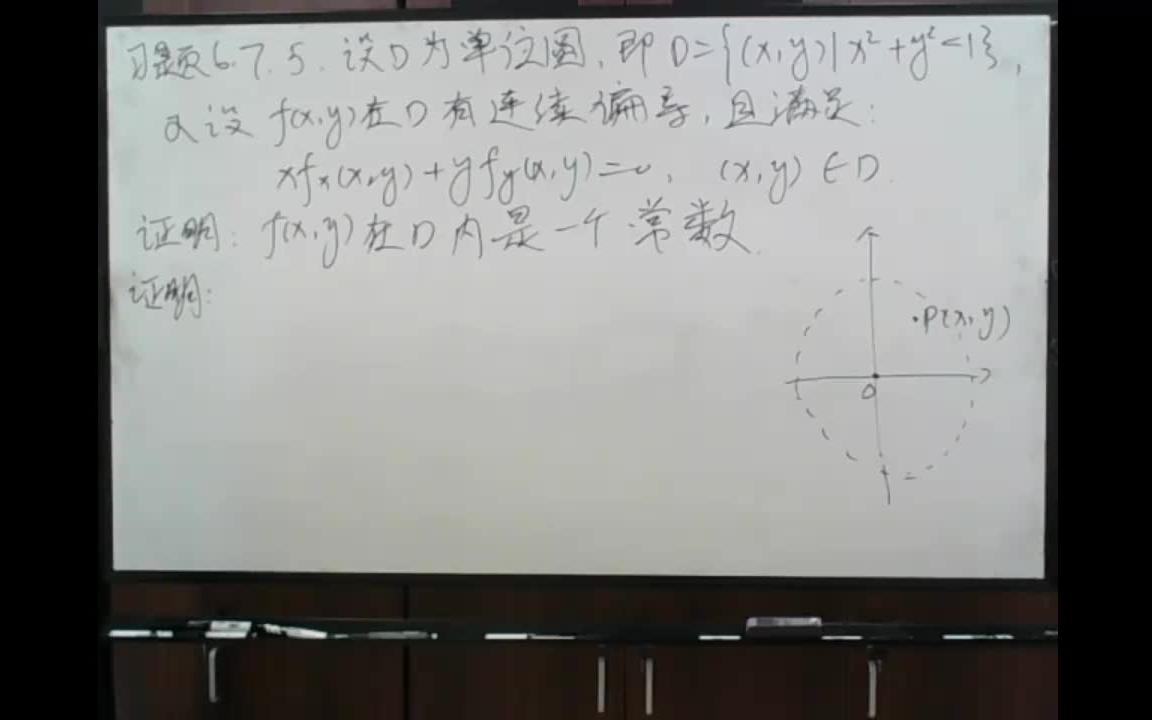 习题6.7.5. 设D为单位圆, 即 D={(x,y)|x²+y²<1},
又设 f(x,y)在D有连续偏导, 且满足:
xfx(x,y)+yfy(x,y)=0, (x,y)∈D.
证明: f(x,y)在D内是一个常数.
证明:
P(x,y)
O